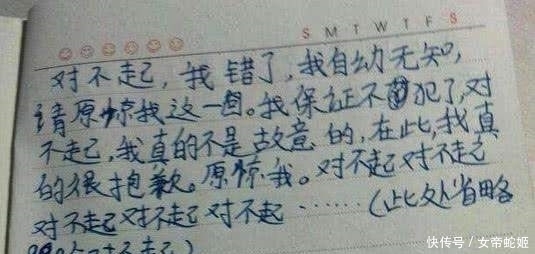 S M T W T F S
对不起，我错了，我自幼无知，
请原惊我这一回。我保证不犯了，对
不起，我真的不是故意的，在此，我真
的很抱歉。原惊我。对不起对不起
对不起对不起对不起……（此处省略
快传号 / 女帝蛇姬